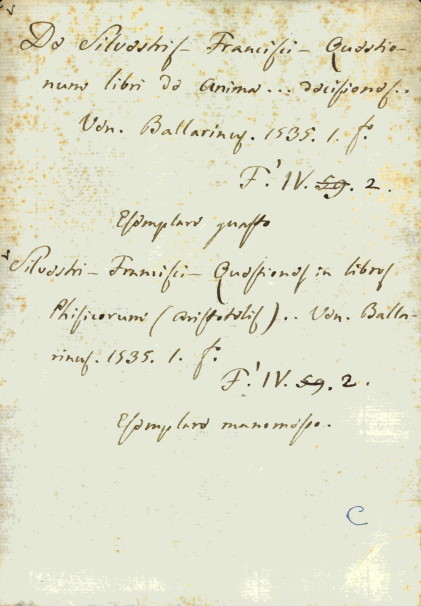 De Silvestris - Francisci - Quæstio-
num libri de anima... decisiones..
Ven. Ballarinus. 1535. 1. f.º
F.' IV. 59. 2.
Esemplare guasto
Silvestri - Francisci - Quæstiones in libros
Phisicorum (Aristotelis).. Ven. Balla-
rinus. 1535. 1. f.º
F.' IV. 59. 2.
Esemplare manomesso.
C